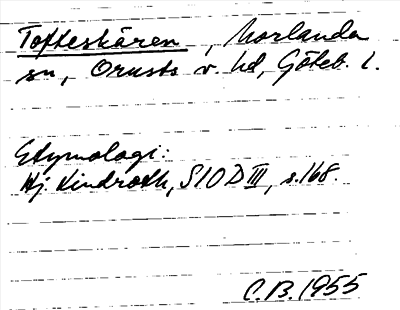 Tofteskären, Morlanda
sn, Orusts v. hd, Göteb. l.
Etymologi:
Hj. Lindroth, SIOD III, s.168.
C.B. 1955